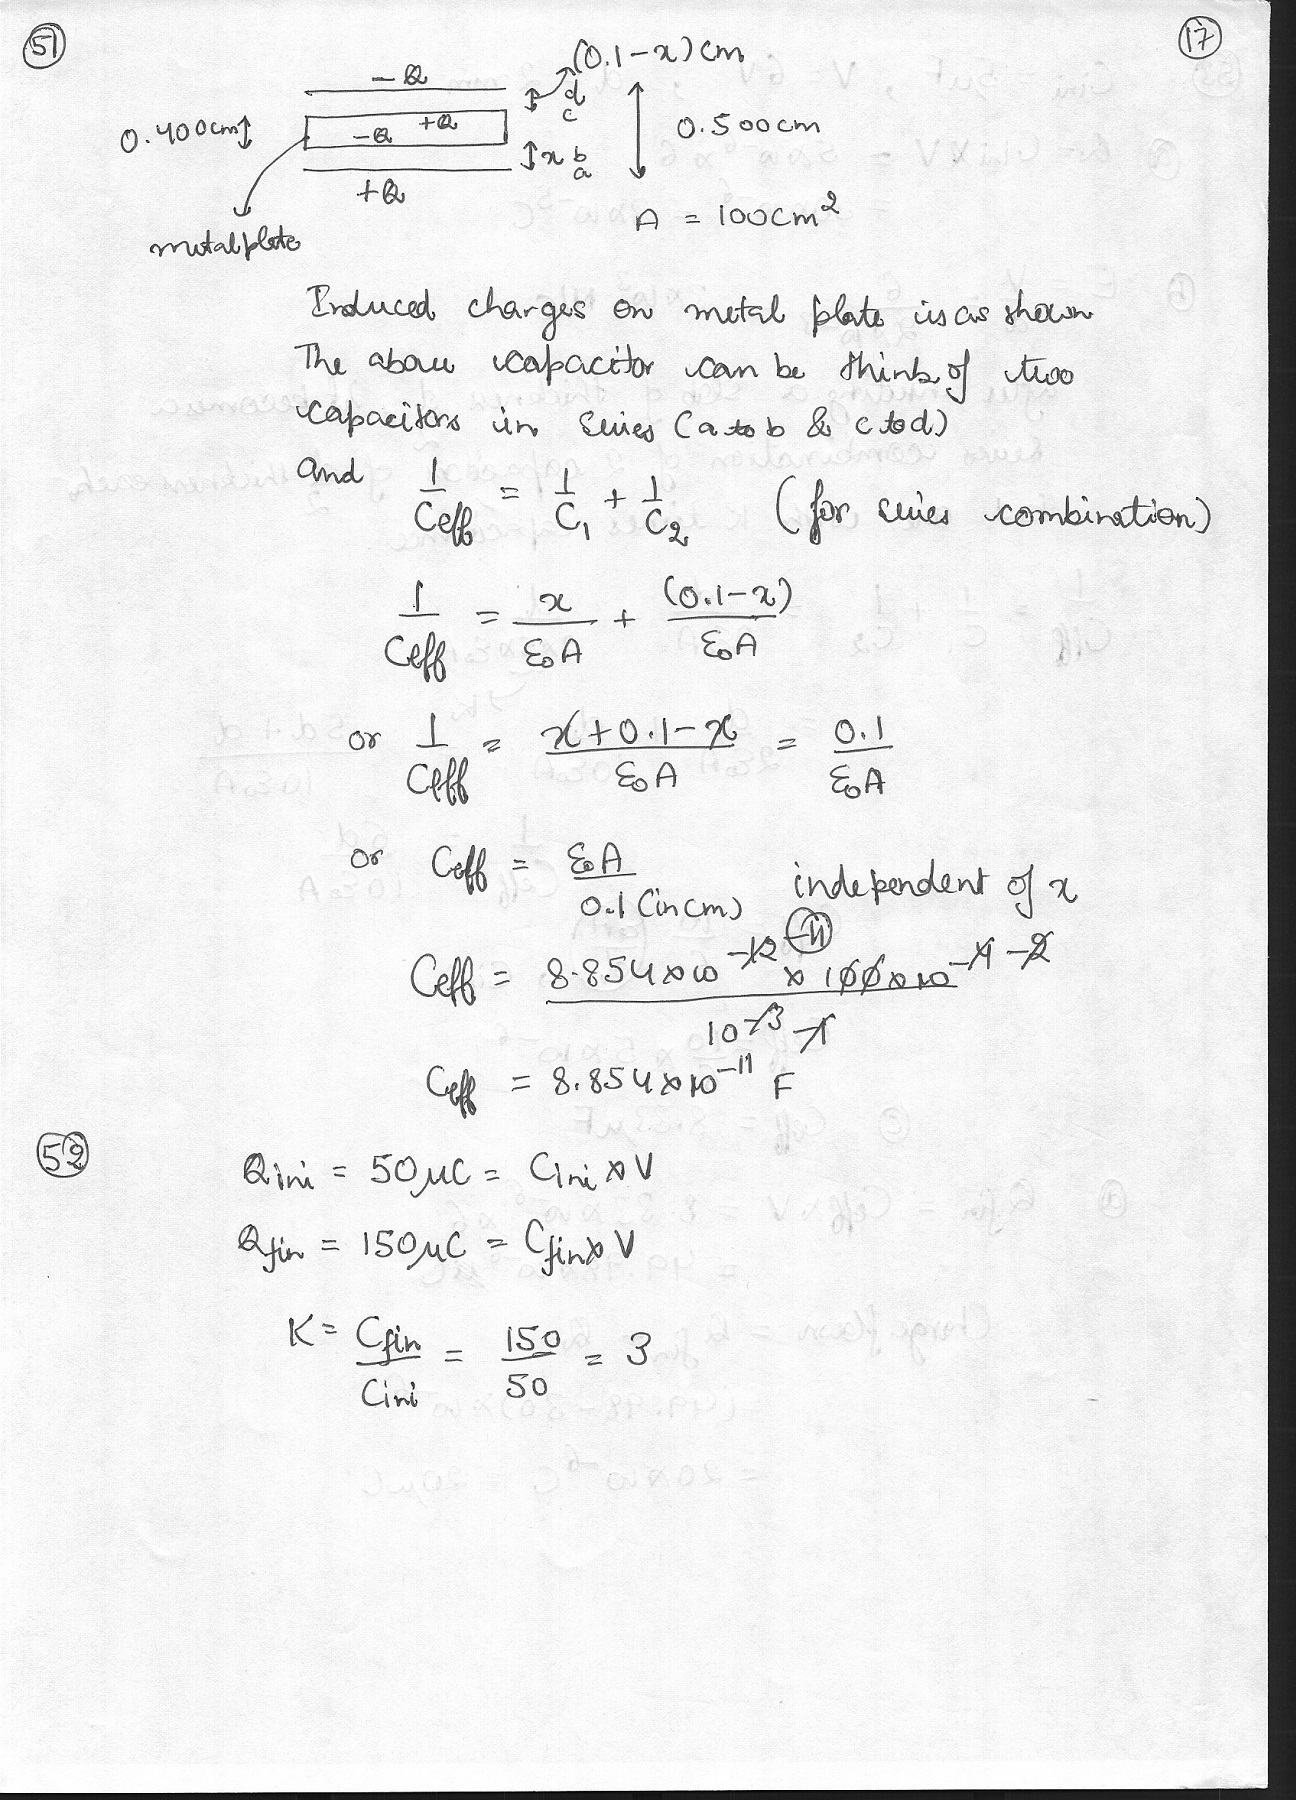 51
17
(0.1-x)cm
-Q
d
c
0.400cm
+Q
-Q
0.500cm
x
b
a
+Q
A = 100cm²
metalplate
Induced charges on metal plate is as shown
The above capacitor can be think of two
capacitors in series (a to b & c to d)
and 1/Ceff = 1/C₁ + 1/C₂ (for series combination)
1/Ceff = x/ε₀A + (0.1-x)/ε₀A
or 1/Ceff = (x+0.1-x)/ε₀A = 0.1/ε₀A
or Ceff = ε₀A/0.1(in cm) independent of x
Ceff = 8.854×10⁻¹² ⁻¹¹ × 100×10⁻⁴ ⁻² / 10⁻³ ⁻¹
Ceff = 8.854×10⁻¹¹ F
52
Qini = 50μC = Cini × V
Qfin = 150μC = Cfin × V
K = Cfin/Cini = 150/50 = 3